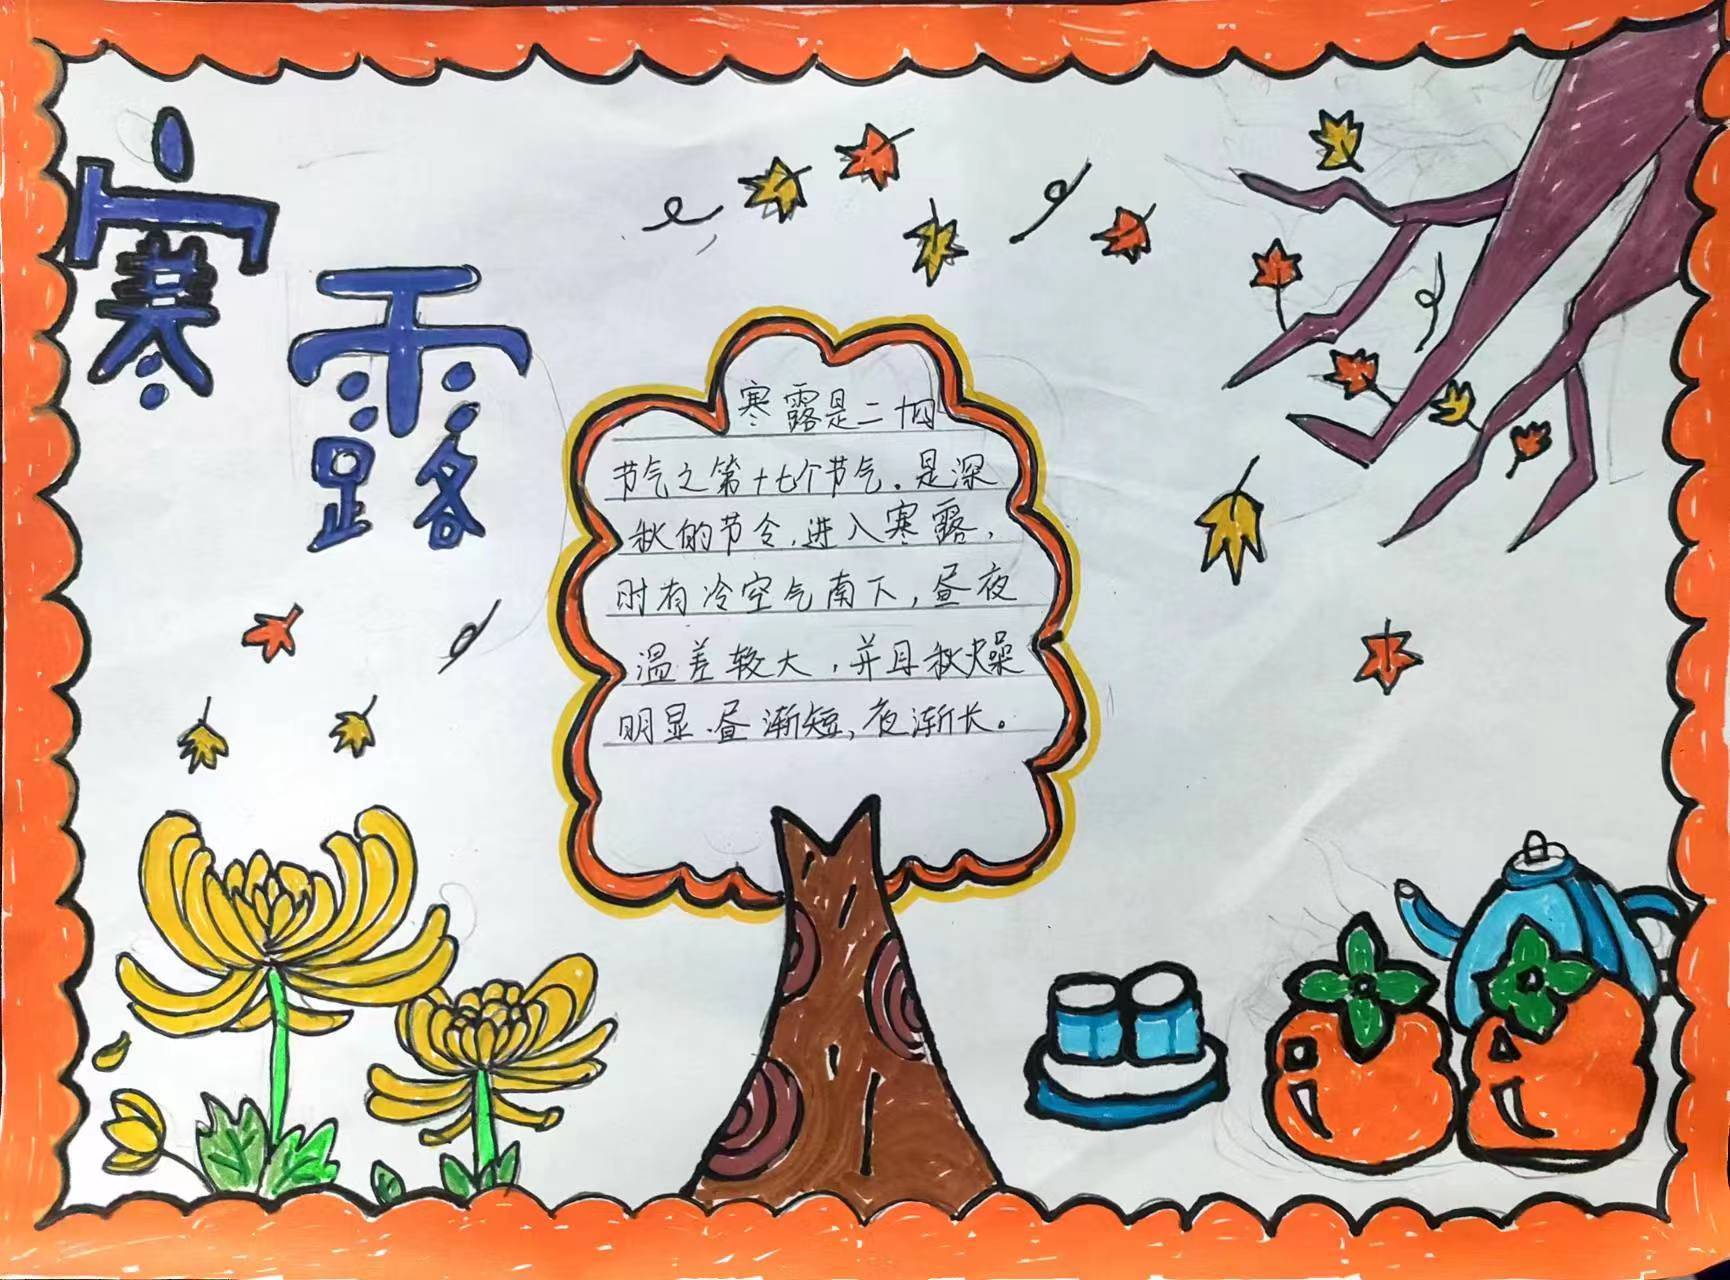 寒露
寒露是二十四
节气之第十七个节气。是深
秋的节令,进入寒露,
时有冷空气南下,昼夜
温差较大,并且秋燥
明显.昼渐短,夜渐长。